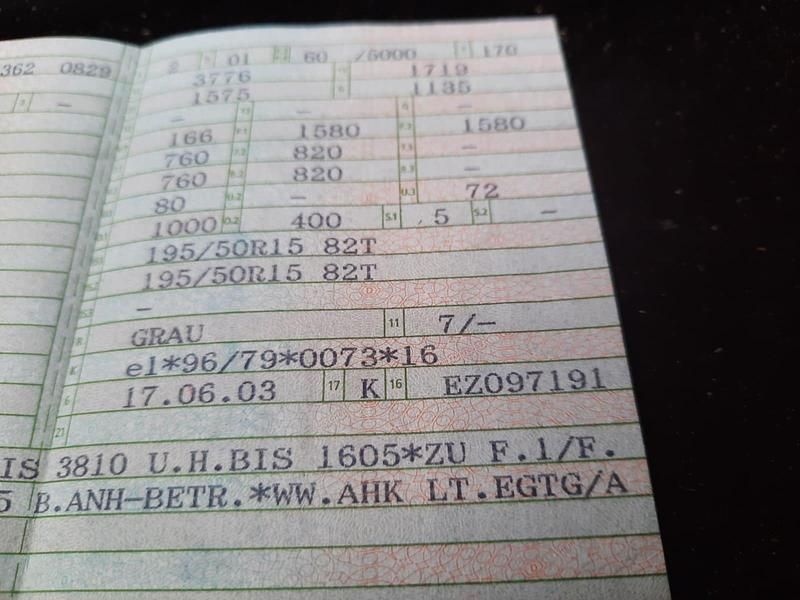 362 0829
2 01 60 /5000 170
3776 1719
1575 1135
–
– – –
166 F.1 1580 F.2 1580
760 820 –
760 8.2 820 –
80 U.2 – U.3 72
1000 O.2 400 S.1 5 S.2 –
195/50R15 82T
195/50R15 82T
–
R GRAU 11 7/–
K e1*96/79*0073*16
6 17.06.03 17 K 16 EZ097191
21
IS 3810 U.H.BIS 1605*ZU F.1/F.
5 B.ANH-BETR.*WW.AHK LT.EGTG/A